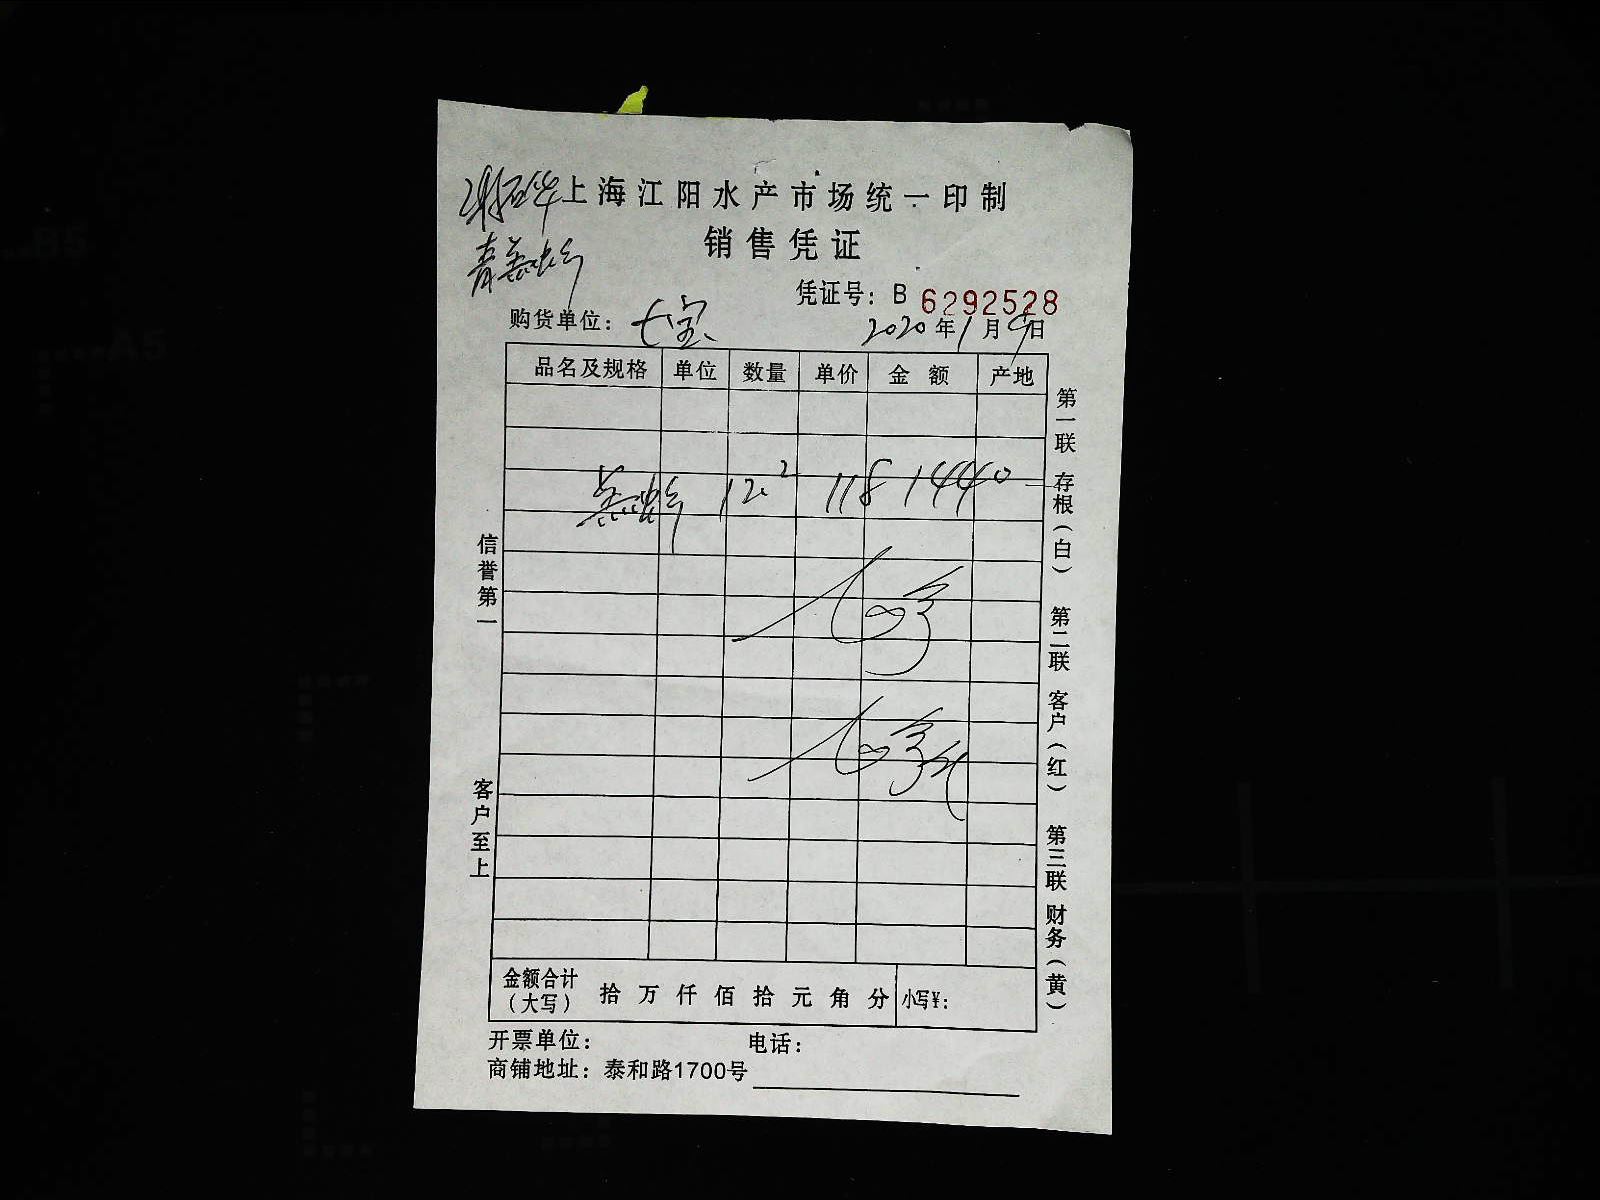 上海江阳水产市场统一印制
销售凭证
凭证号：B 6292528
购货单位：七宝
2020年1月9日
品名及规格 单位 数量 单价 金额 产地
12.2 118 1440
信誉第一
客户至上
第一联 存根（白） 第二联 客户（红） 第三联 财务（黄）
金额合计（大写） 拾 万 仟 佰 拾 元 角 分 小写¥：
开票单位： 电话：
商铺地址：泰和路1700号